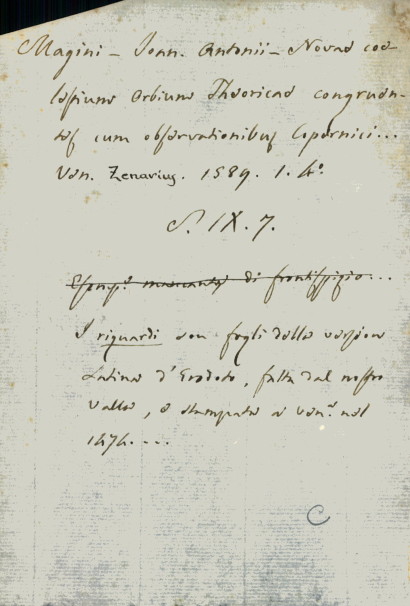 Magini - Ioan. Antonii - Novae coe-
lestium Orbium Theoricae congruen-
tes cum observationibus Copernici...
Ven. Zenarius. 1589. 1. 4°
S. IX. 7.
Esemp.e mancante di frontispizio...
I riguardi son fogli della version
Latina d'Erodoto, fatta dal nostro
Valla, e stampata a Ven.a nel
1474. ...
C